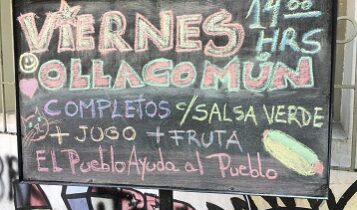 VIERNES 14:00 HRS
OLLA COMÚN
COMPLETOS c/SALSA VERDE
+ JUGO + FRUTA
EL Pueblo Ayuda al Pueblo